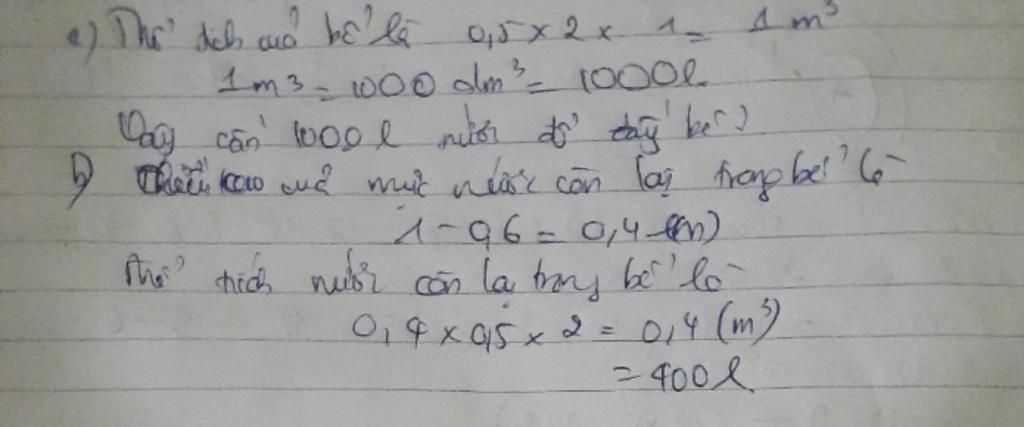 a) Thể tích của bể là 0,5 x 2 x 1 = 1 m³
1m³ = 1000 dm³ = 1000l
Vậy cần 1000l nước đổ đầy bể
b) Chiều cao của mực nước còn lại trong bể là
1 - 0,6 = 0,4 (m)
Thể tích nước còn lại trong bể là
0,4 x 0,5 x 2 = 0,4 (m³)
= 400l